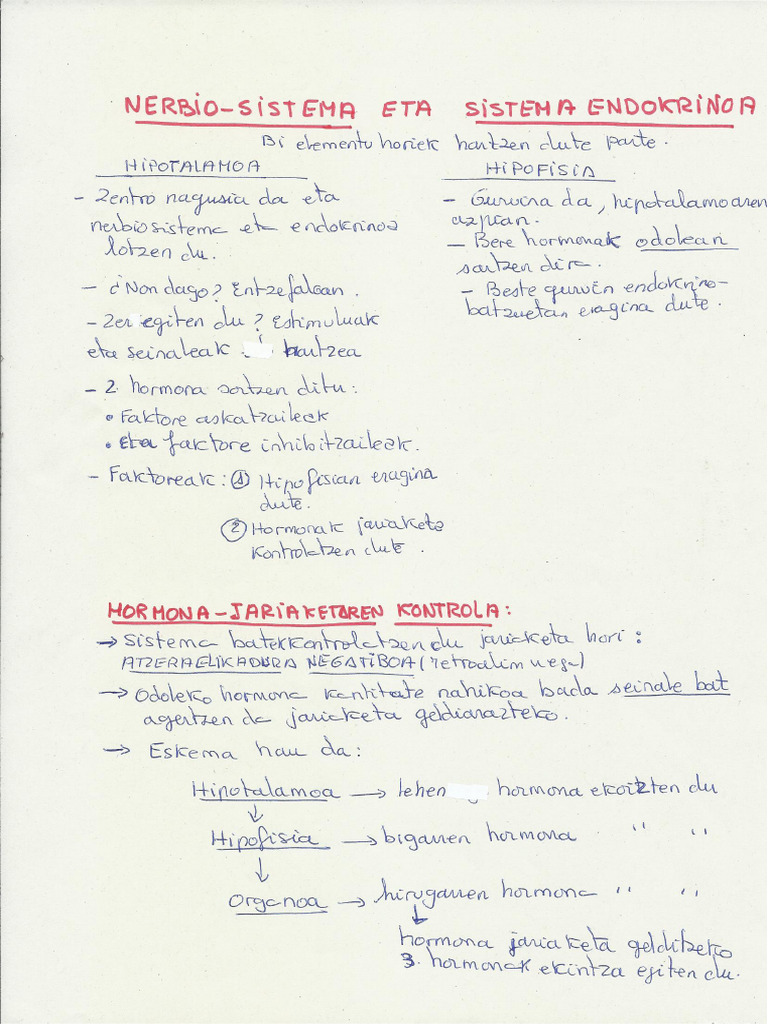 NERBIO-SISTEMA ETA SISTEMA ENDOKRINOA
Bi elementu horiek hartzen dute parte.
HIPOTALAMOA
- Zentro nagusia da eta
nerbiosistema eta endokrinoa
lotzen du.
- ¿Non dago? Entzefaloan.
- Zer egiten du? Estimuluak
eta seinaleak hartzea
- 2 hormona sortzen ditu:
• Faktore askatzaileak
• Eta faktore inhibitzaileak.
- Faktoreak: ① Hipofisian eragina
dute.
② Hormonak jariaketa
kontrolatzen dute.
HIPOFISIA
- Guruina da, hipotalamoaren
azpian.
- Bere hormonak odolean
sartzen dira.
- Beste guruin endokrino-
batzuetan eragina dute.
HORMONA-JARIAKETAREN KONTROLA:
→ Sistema batek kontrolatzen du jariaketa hori:
ATZERAELIKADURA NEGATIBOA (retroalim nega)
→ Odoleko hormona kantitate nahikoa bada seinale bat
agertzen da jariaketa geldiarazteko.
→ Eskema hau da:
Hipotalamoa → lehen hormona ekoizten du
↓
Hipofisia → bigarren hormona " "
↓
Organoa → hirugarren hormona " "
↓
hormona jariaketa gelditzeko
3. hormonak ekintza egiten du.